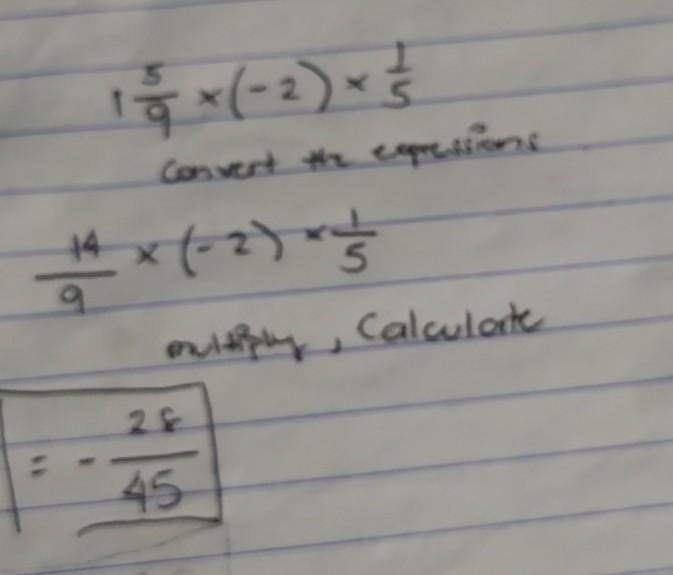 1 5/9 × (-2) × 1/5
Convert the expressions
14/9 × (-2) × 1/5
multiply, Calculate
= - 28/45